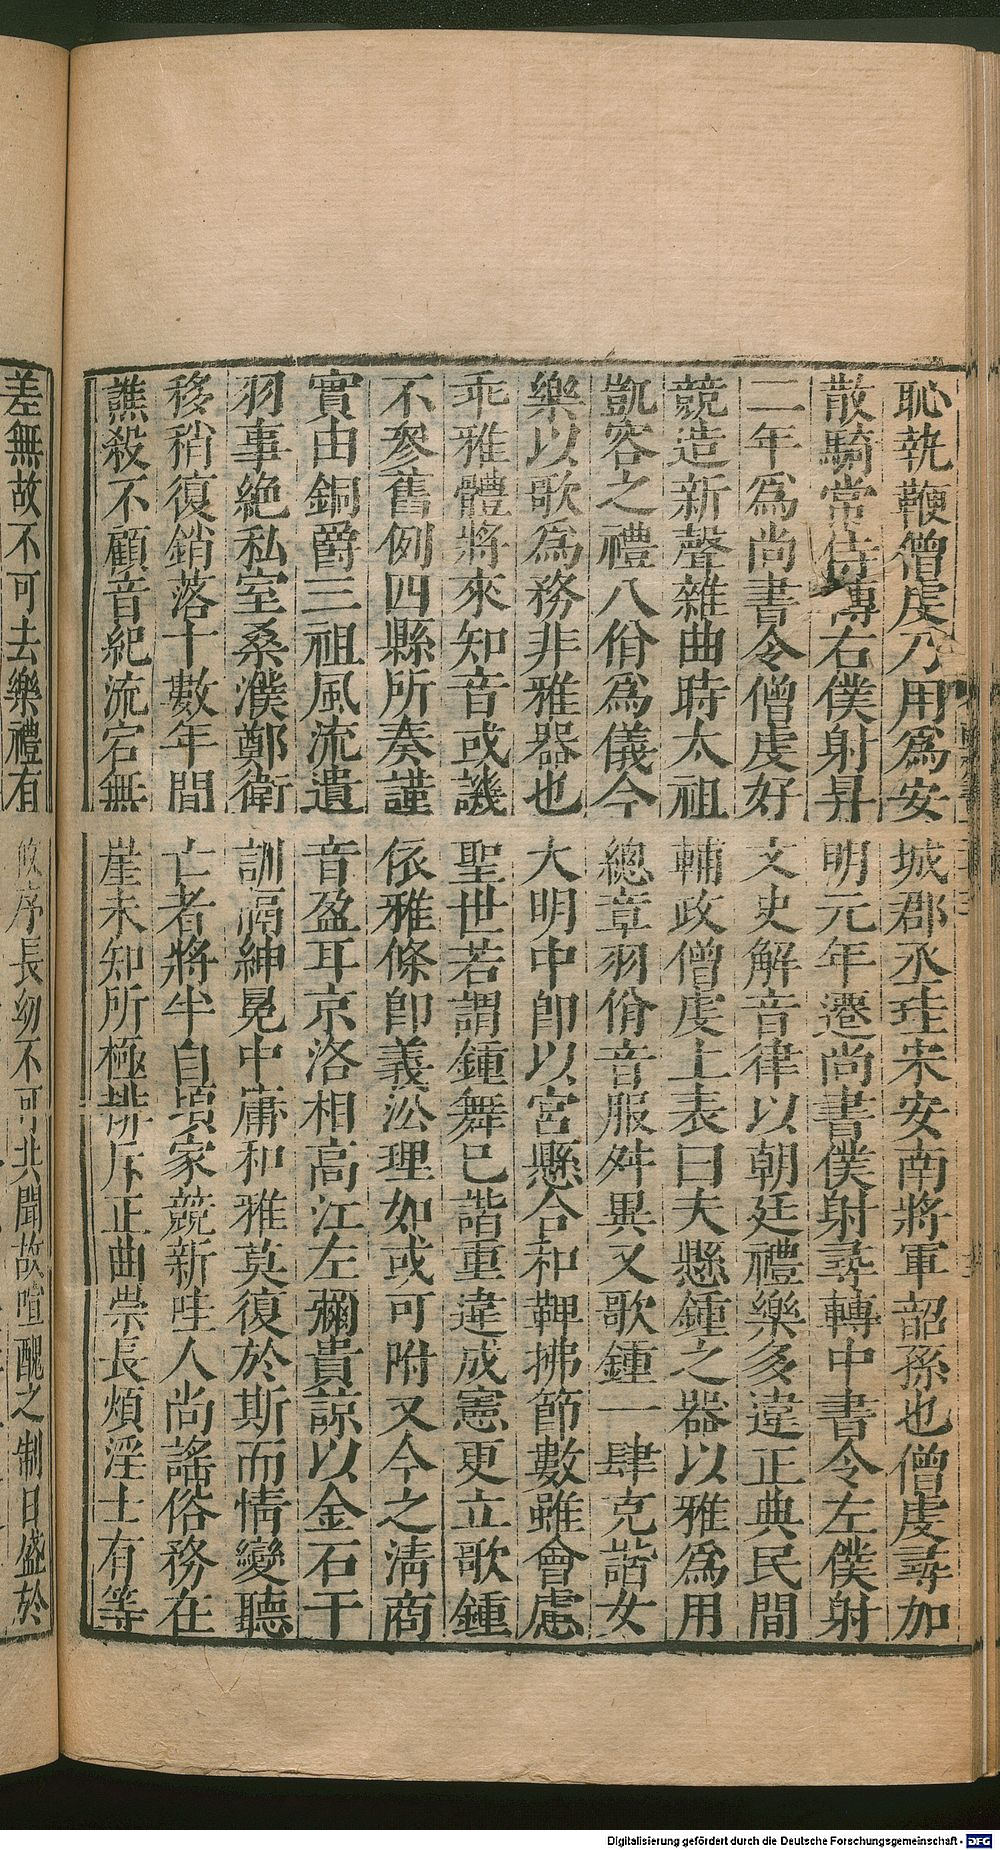 恥執鞭僧虔乃用為安城郡丞珪宋安南將軍韶孫也僧虔尋加
散騎常侍轉右僕射昇明元年遷尚書僕射尋轉中書令左僕射
二年為尚書令僧虔好文史解音律以朝廷禮樂多違正典民間
競造新聲雜曲時太祖輔政僧虔上表曰夫懸鍾之器以雅為用
凱容之禮八佾為儀今總章羽佾音服舛異又歌鍾一肆克諧女
樂以歌為務非雅器也大明中即以宮懸合和鞞拂節數雖會慮
乖雅體將來知音或譏聖世若謂鍾舞已諧重違成憲更立歌鍾
不參舊例四縣所奏謹依雅條即義沿理如或可附又今之清商
實由銅爵三祖風流遺音盈耳京洛相高江左彌貴諒以金石干
羽事絕私室桑濮鄭衛訓隔紳冕中庸和雅莫復於斯而情變聽
移稍復銷落十數年間亡者將半自頃家競新哇人尚謠俗務在
譙殺不顧音紀流宕無崖未知所極排斥正曲崇長煩淫士有等
差無故不可去樂禮有攸序長幼不可共聞故喧醜之制日盛於
Digitalisierung gefördert durch die Deutsche Forschungsgemeinschaft - DFG